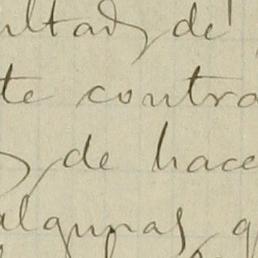 ultad, de
te contra
y de hace
algunas, q